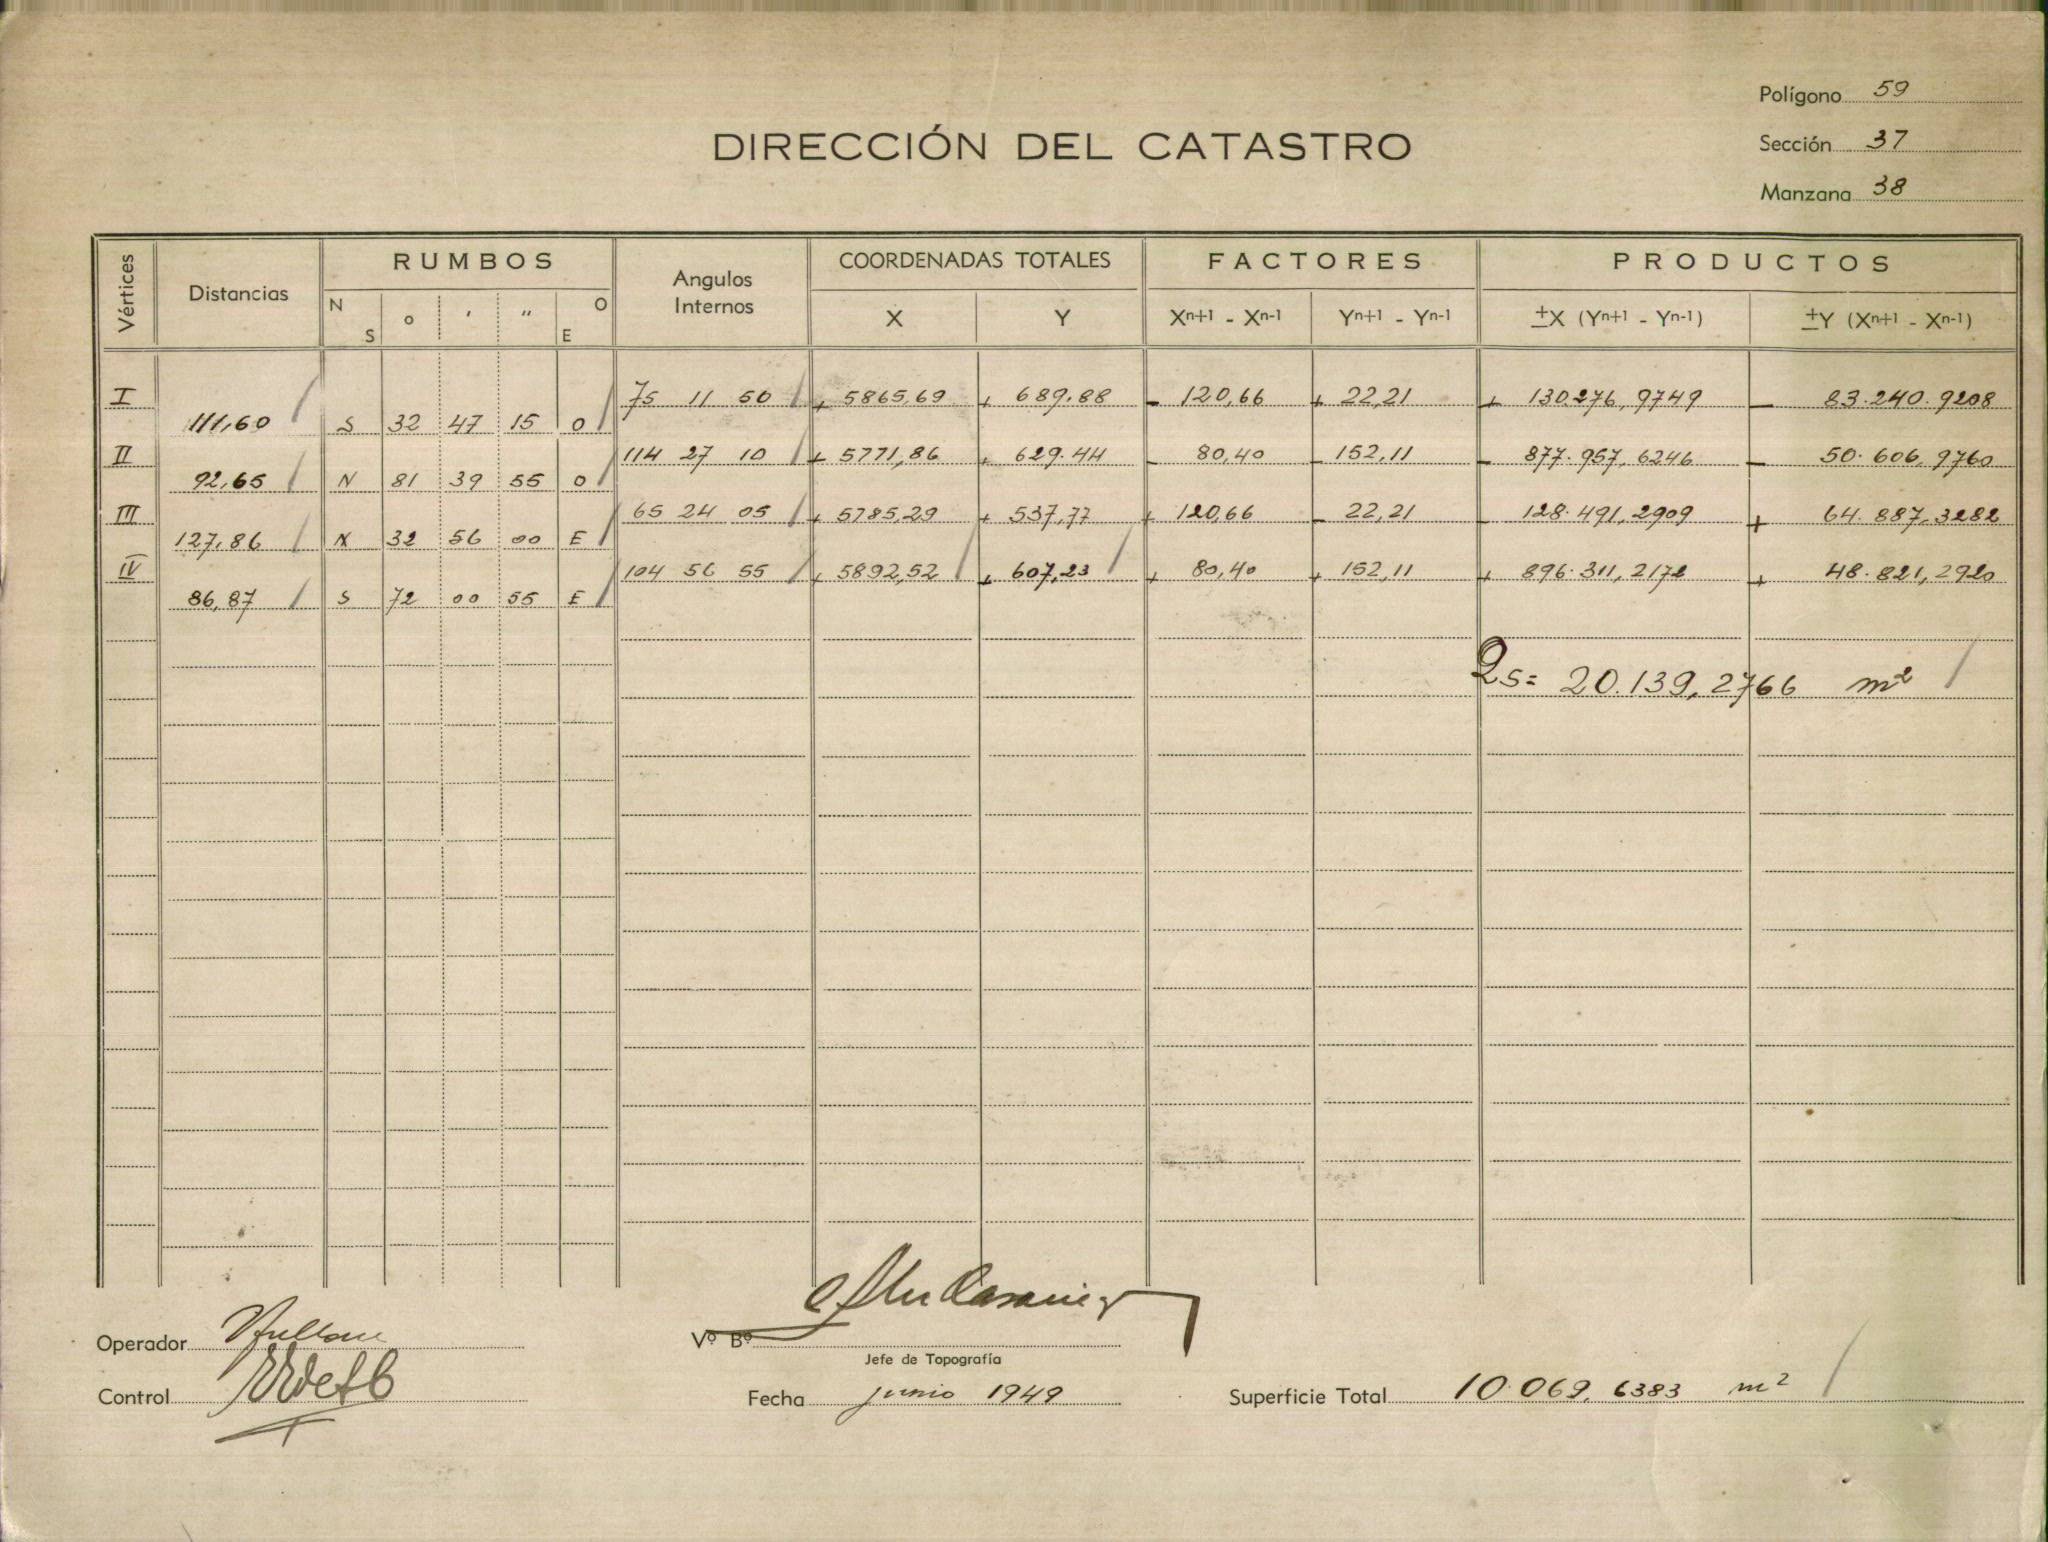 Polígono 59
DIRECCIÓN DEL CATASTRO
Sección 37
Manzana 38
Vértices Distancias RUMBOS Angulos Internos COORDENADAS TOTALES FACTORES PRODUCTOS
N S ° ' " E O X Y Xn+1 - Xn-1 Yn+1 - Yn-1 ±X (Yn+1 - Yn-1) ±Y (Xn+1 - Xn-1)
I 75 11 50 + 5865,69 + 689.88 - 120,66 + 22,21 + 130.276,9749 - 83.240.9208
111,60 S 32 47 15 O
II 114 27 10 + 5771,86 + 629.44 - 80,40 - 152,11 - 877.957,6246 - 50.606,9760
92,65 N 81 39 55 O
III 65 24 05 + 5785,29 + 537,77 + 120,66 - 22,21 - 128.491,2909 + 64.887,3282
127,86 N 32 56 00 E
IV 104 56 55 + 5892,52 + 607,23 + 80,40 + 152,11 + 896.311,2172 + 48.821,2920
86,87 S 72 00 55 E
2s= 20.139,2766 m²
Operador
Vº Bº
Jefe de Topografía
Control
Fecha junio 1949
Superficie Total 10.069,6383 m²